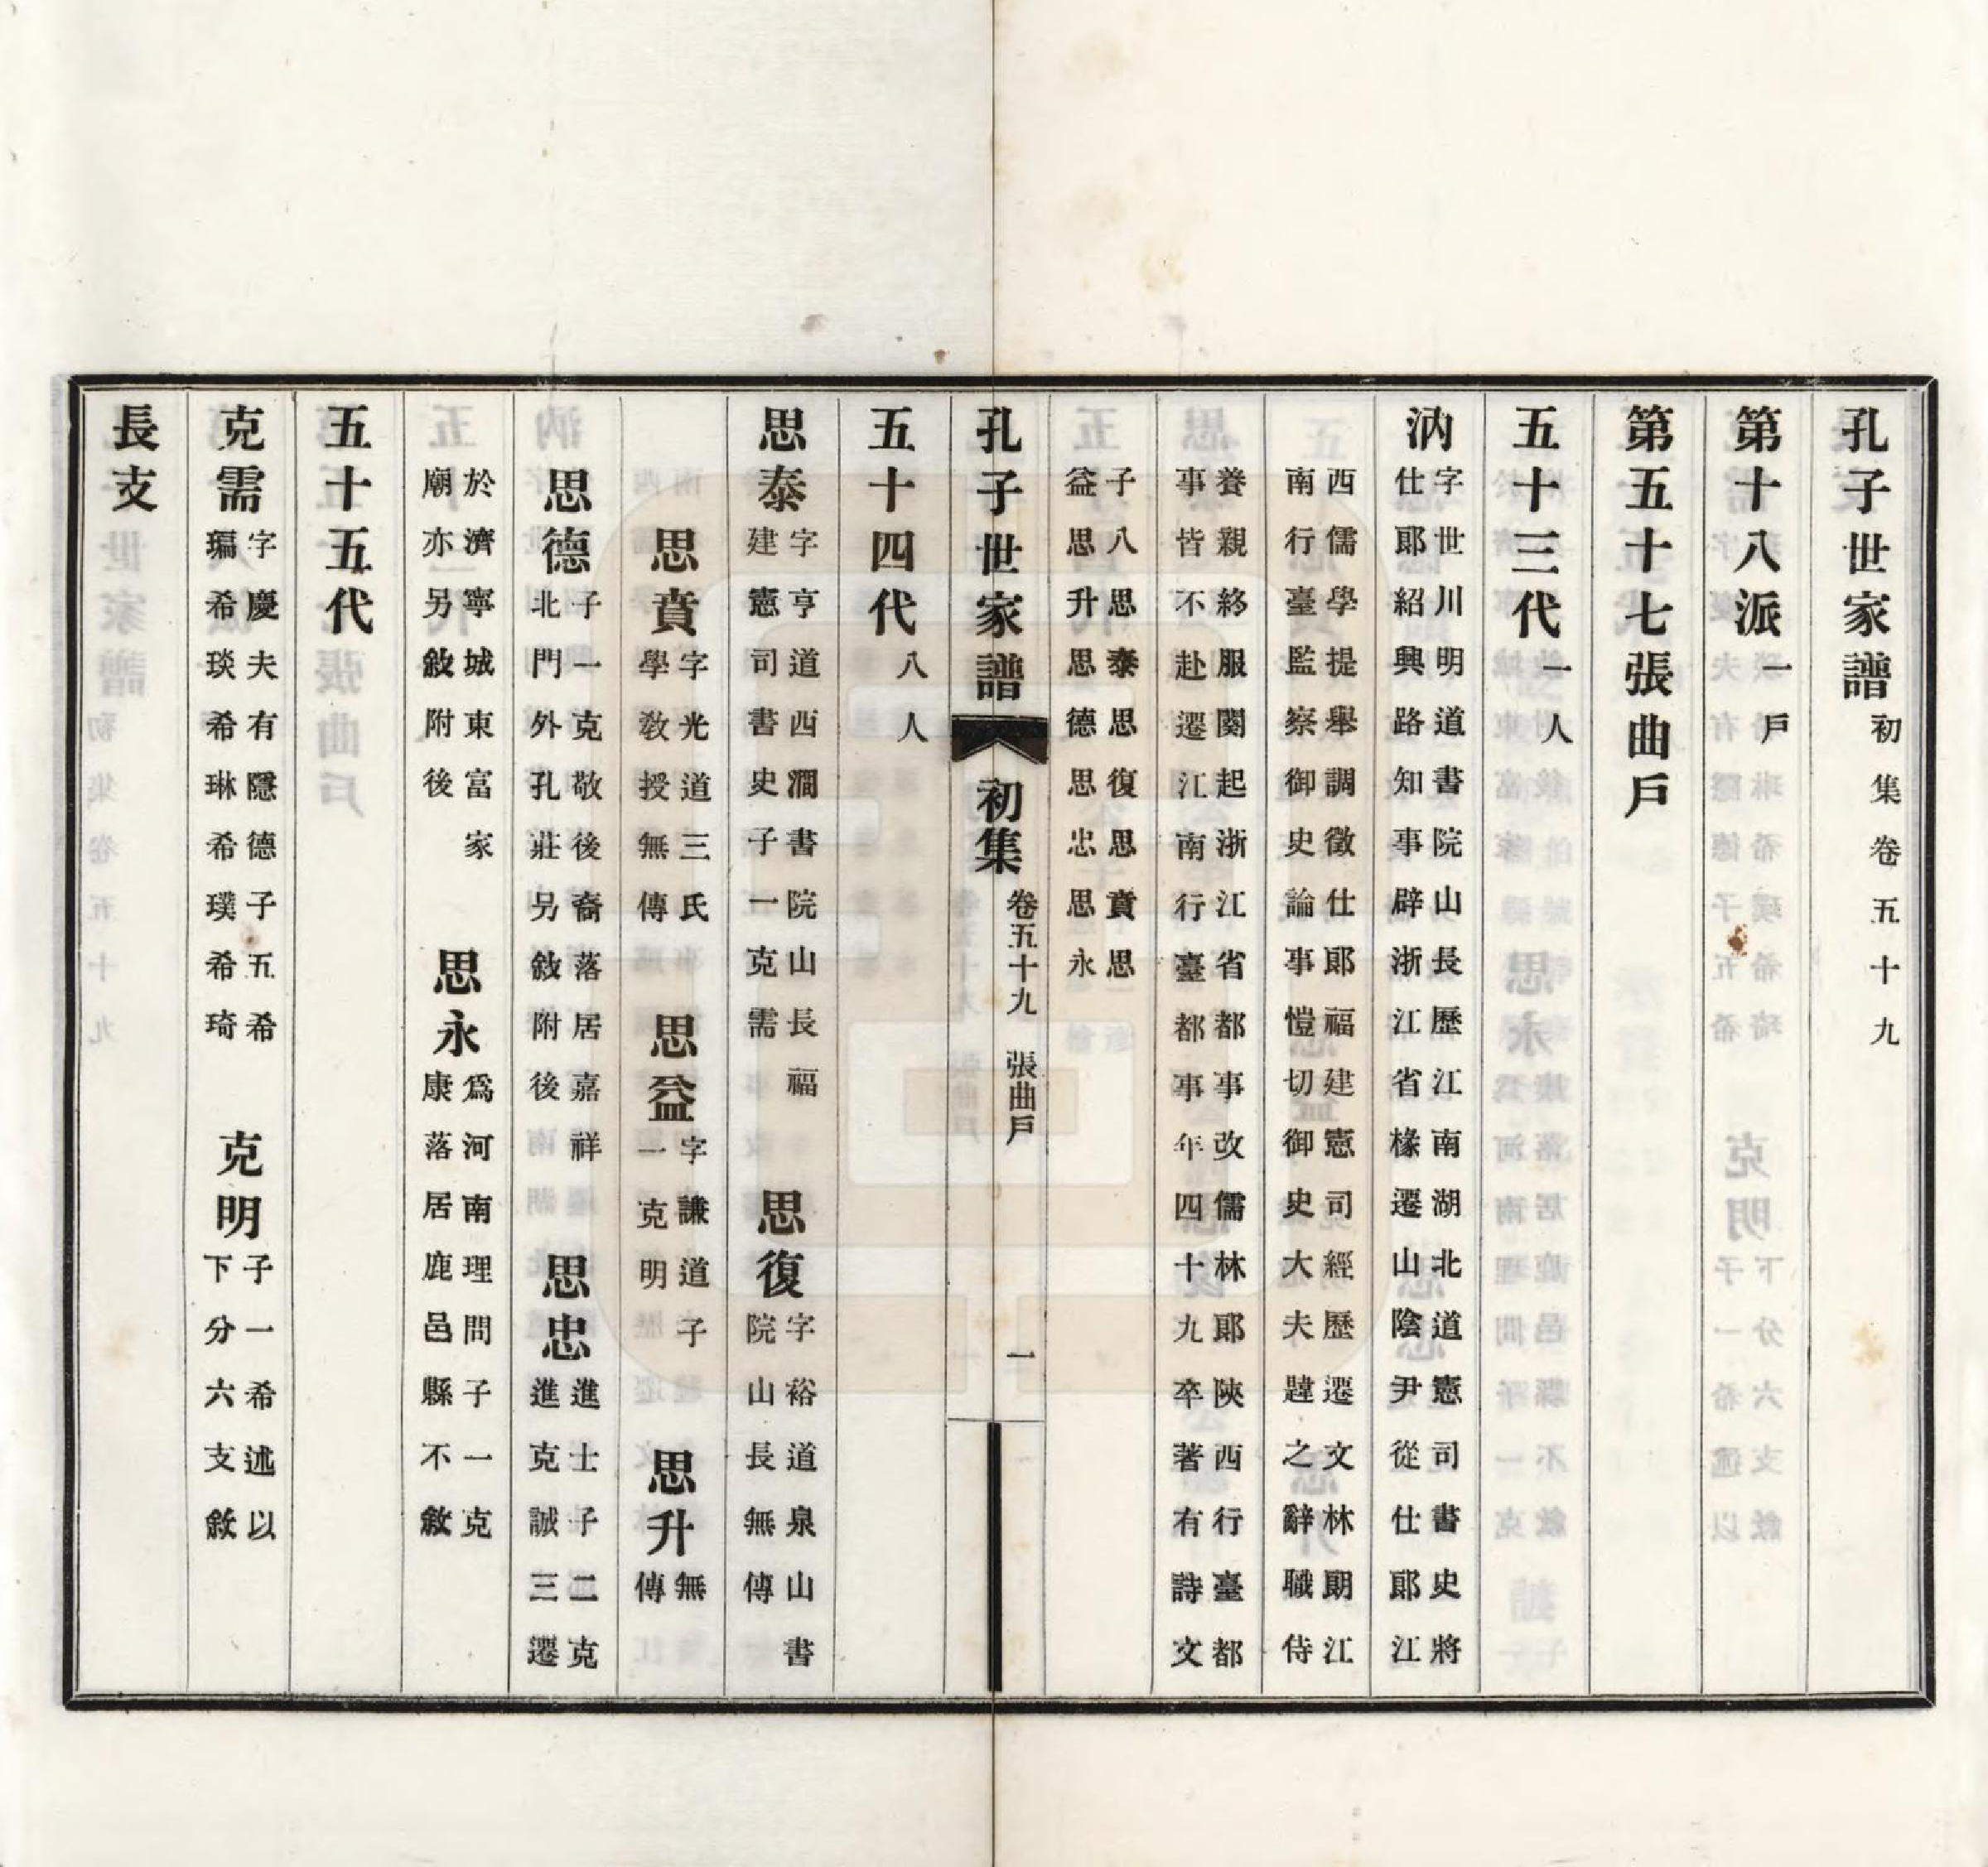 孔子世家譜初集卷五十九
第十八派一戶
第五十七張曲戶
五十三代一人
汭字世川明道書院山長歷江南湖北道憲司書史將
仕郞紹興路知事辟浙江省椽遷山陰尹從仕郞江
西儒學提舉調徵仕郞福建憲司經歷遷文林郞江
南行臺監察御史論事愷切御史大夫韙之辭職侍
養親終服闋起浙江省都事改儒林郞陝西行臺都
事皆不赴遷江南行臺都事年四十九卒著有詩文
子八思泰思復思賁思
益思升思德思忠思永
孔子世家譜 初集 卷五十九 張曲戶 一
五十四代八人
思泰字亨道西澗書院山長福
建憲司書史子一克需
思復字裕道泉山書
院山長無傳
思賁字光道三氏
學敎授無傳
思益字謙道子
一克明
思升無
傳
思德子一克敬後裔落居嘉祥
北門外孔莊另敘附後
思忠進士子二克
進克誠三遷
於濟寧城東富家
廟亦另敘附後
思永爲河南理問子一克
康落居鹿邑縣不敘
五十五代
克需字慶夫有隱德子五希
瑥希琰希琳希璞希琦
克明子一希述以
下分六支敘
長支